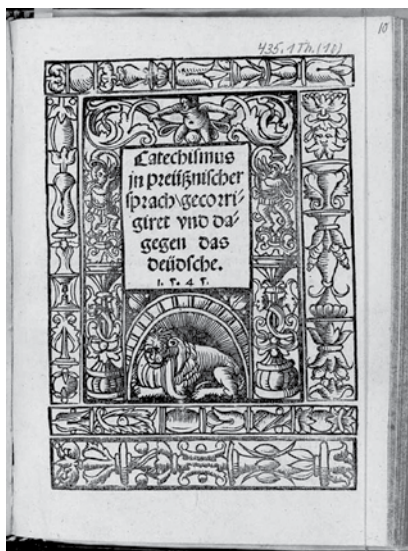 10
435.1Th.(10)
Catechismus
jn preüßnischer
sprach\gecorri⸗
giret vnd da⸗
gegen das
deüdsche.
1.5.4.5.